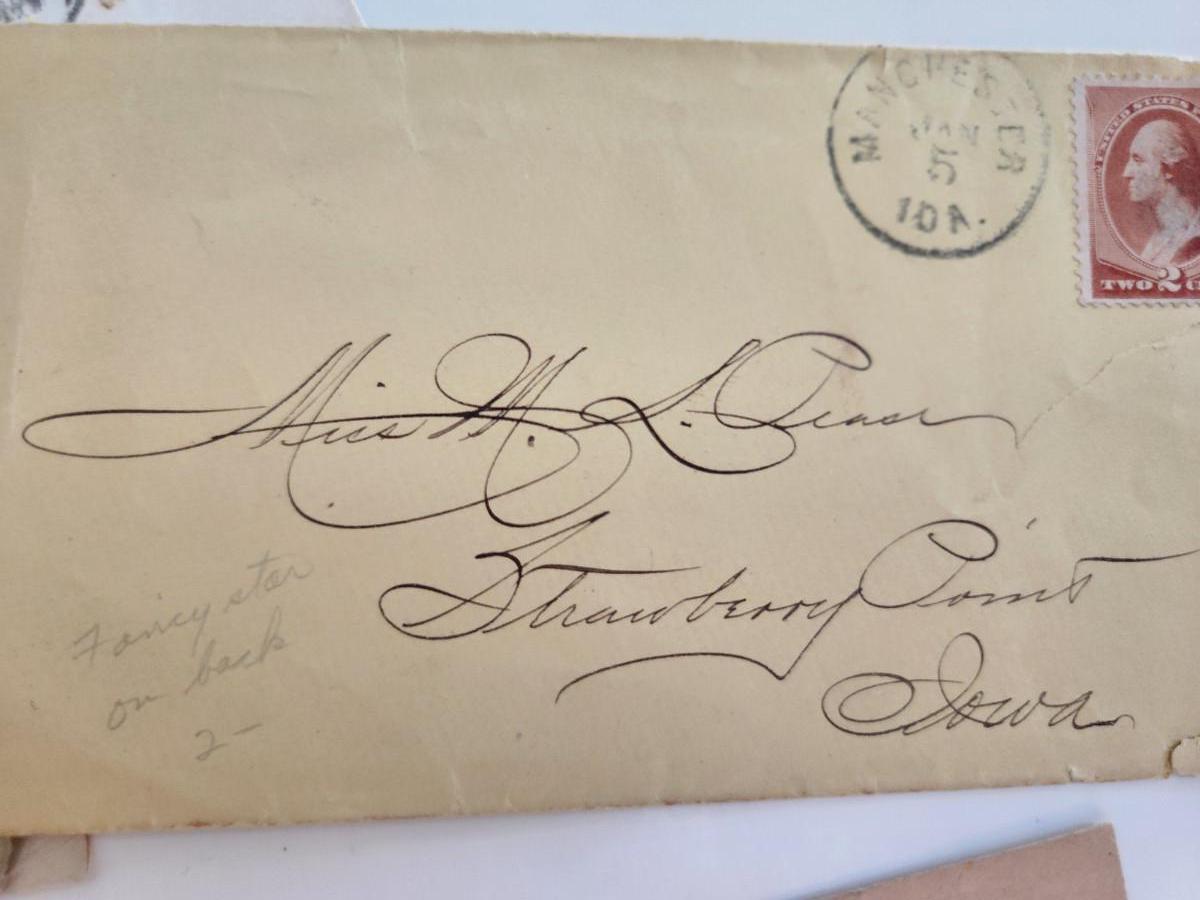 MANCHESTER
JAN
5
IOA.
UNITED STATES
TWO 2
Miss M. L. Pease
Strawberry Point
Iowa
Fancy star
on back
2-